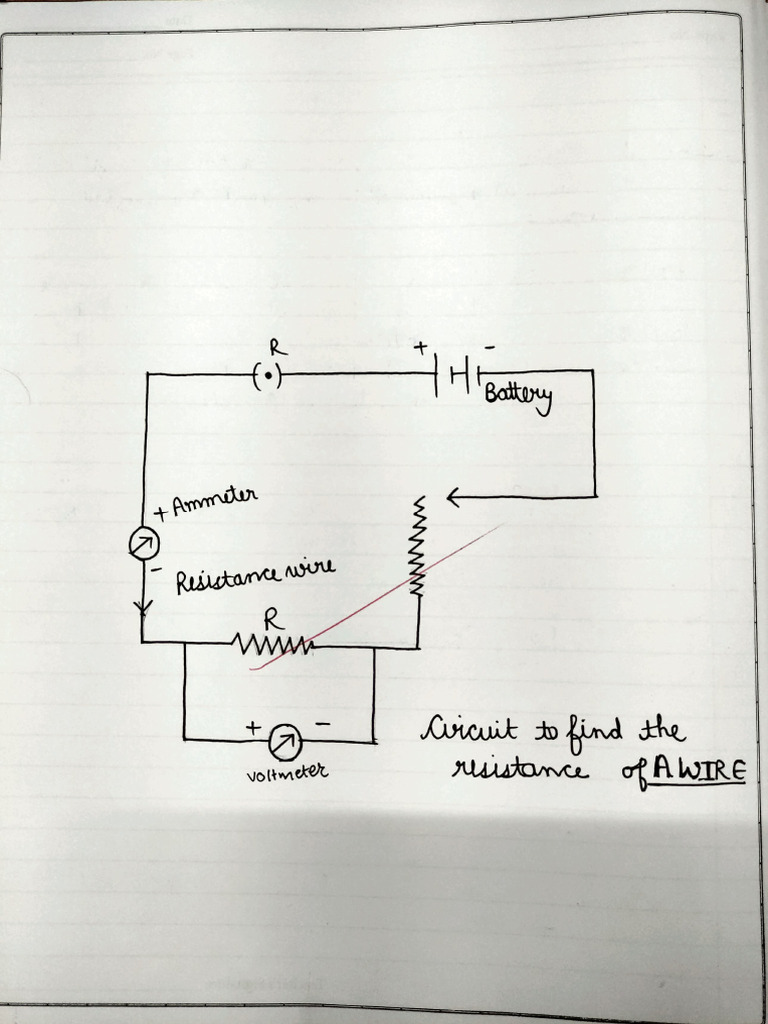 R
+ -
Battery
+ Ammeter
-
Resistance wire
R
+ -
voltmeter
Circuit to find the
resistance of A WIRE